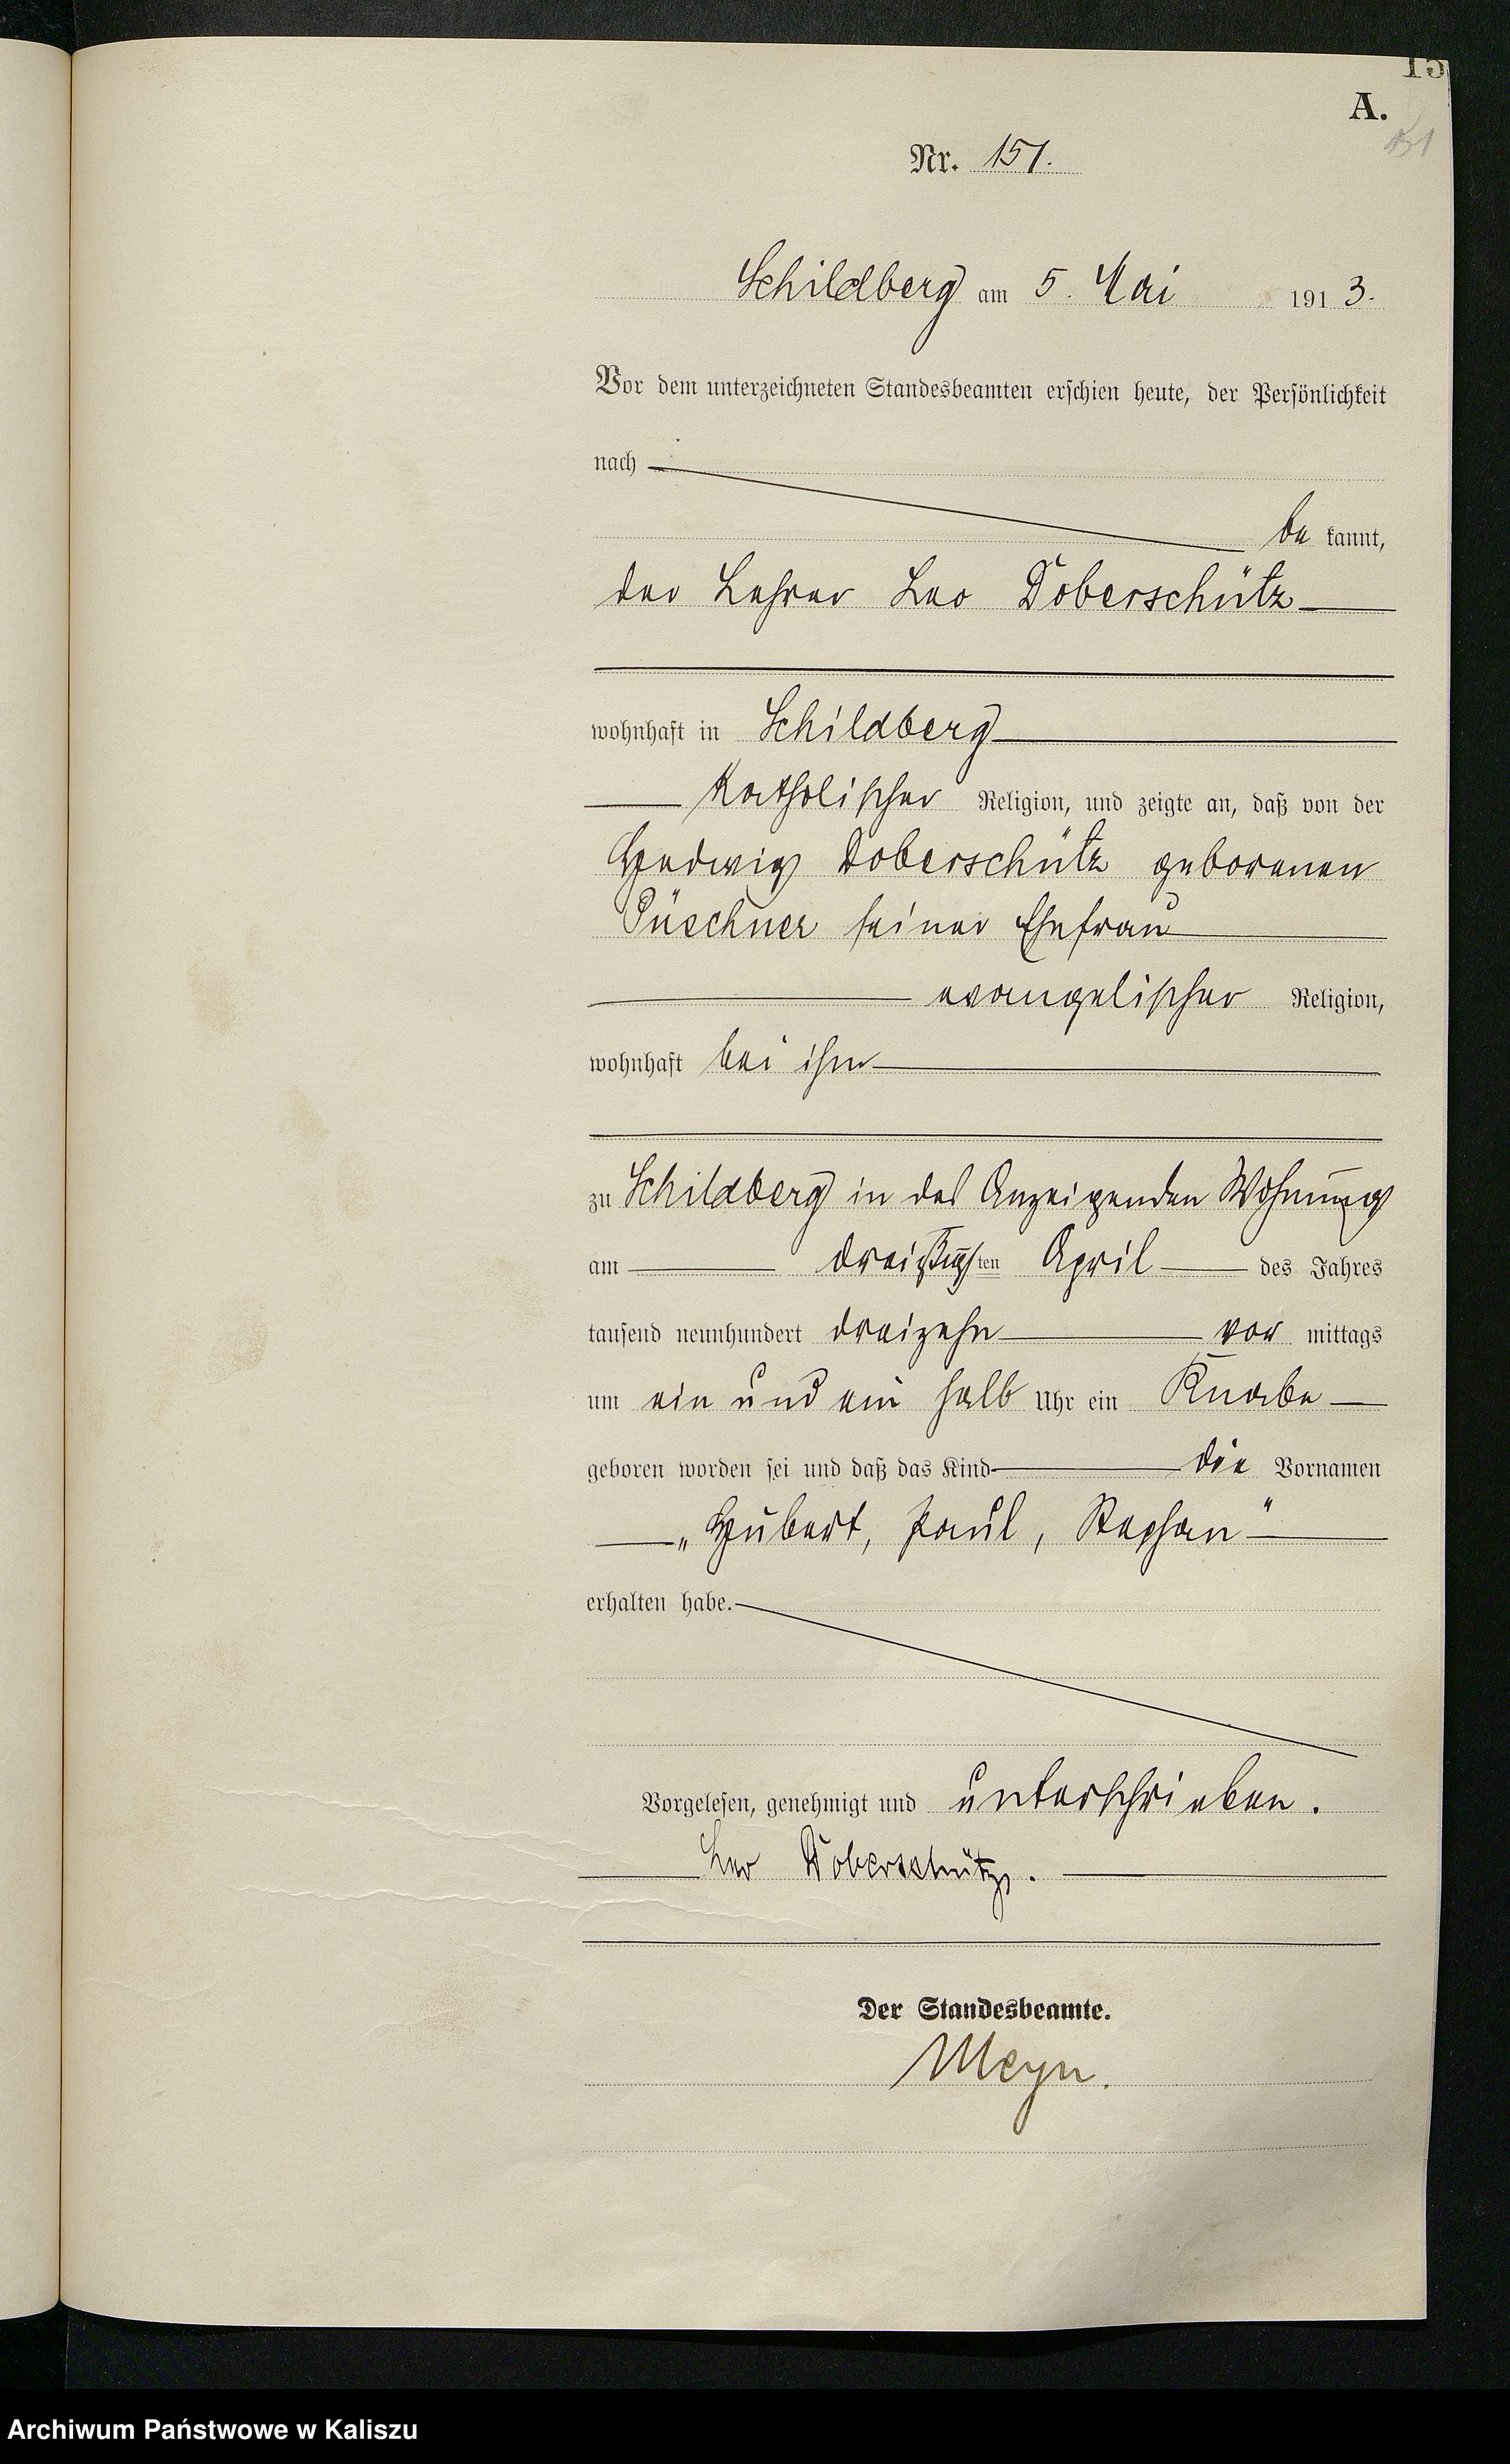 15
A.
151
Nr. 151.
Schildberg am 5. Mai 1913.
Vor dem unterzeichneten Standesbeamten erschien heute, der Persönlichkeit
nach
be kannt,
der Lehrer Leo Doberschütz
wohnhaft in Schildberg
katholischer Religion, und zeigte an, daß von der
Hedwig Doberschütz geborenen
Püschner seiner Ehefrau
evangelischer Religion,
wohnhaft bei ihm
zu Schildberg in des Anzeigenden Wohnung
am dreißigsten April des Jahres
tausend neunhundert dreizehn vor mittags
um ein und ein halb Uhr ein Knabe
geboren worden sei und daß das Kind die Vornamen
„Hubert, Paul, Stephan"
erhalten habe.
Vorgelesen, genehmigt und unterschrieben.
Leo Doberschütz.
Der Standesbeamte.
Meyn.
Archiwum Państwowe w Kaliszu